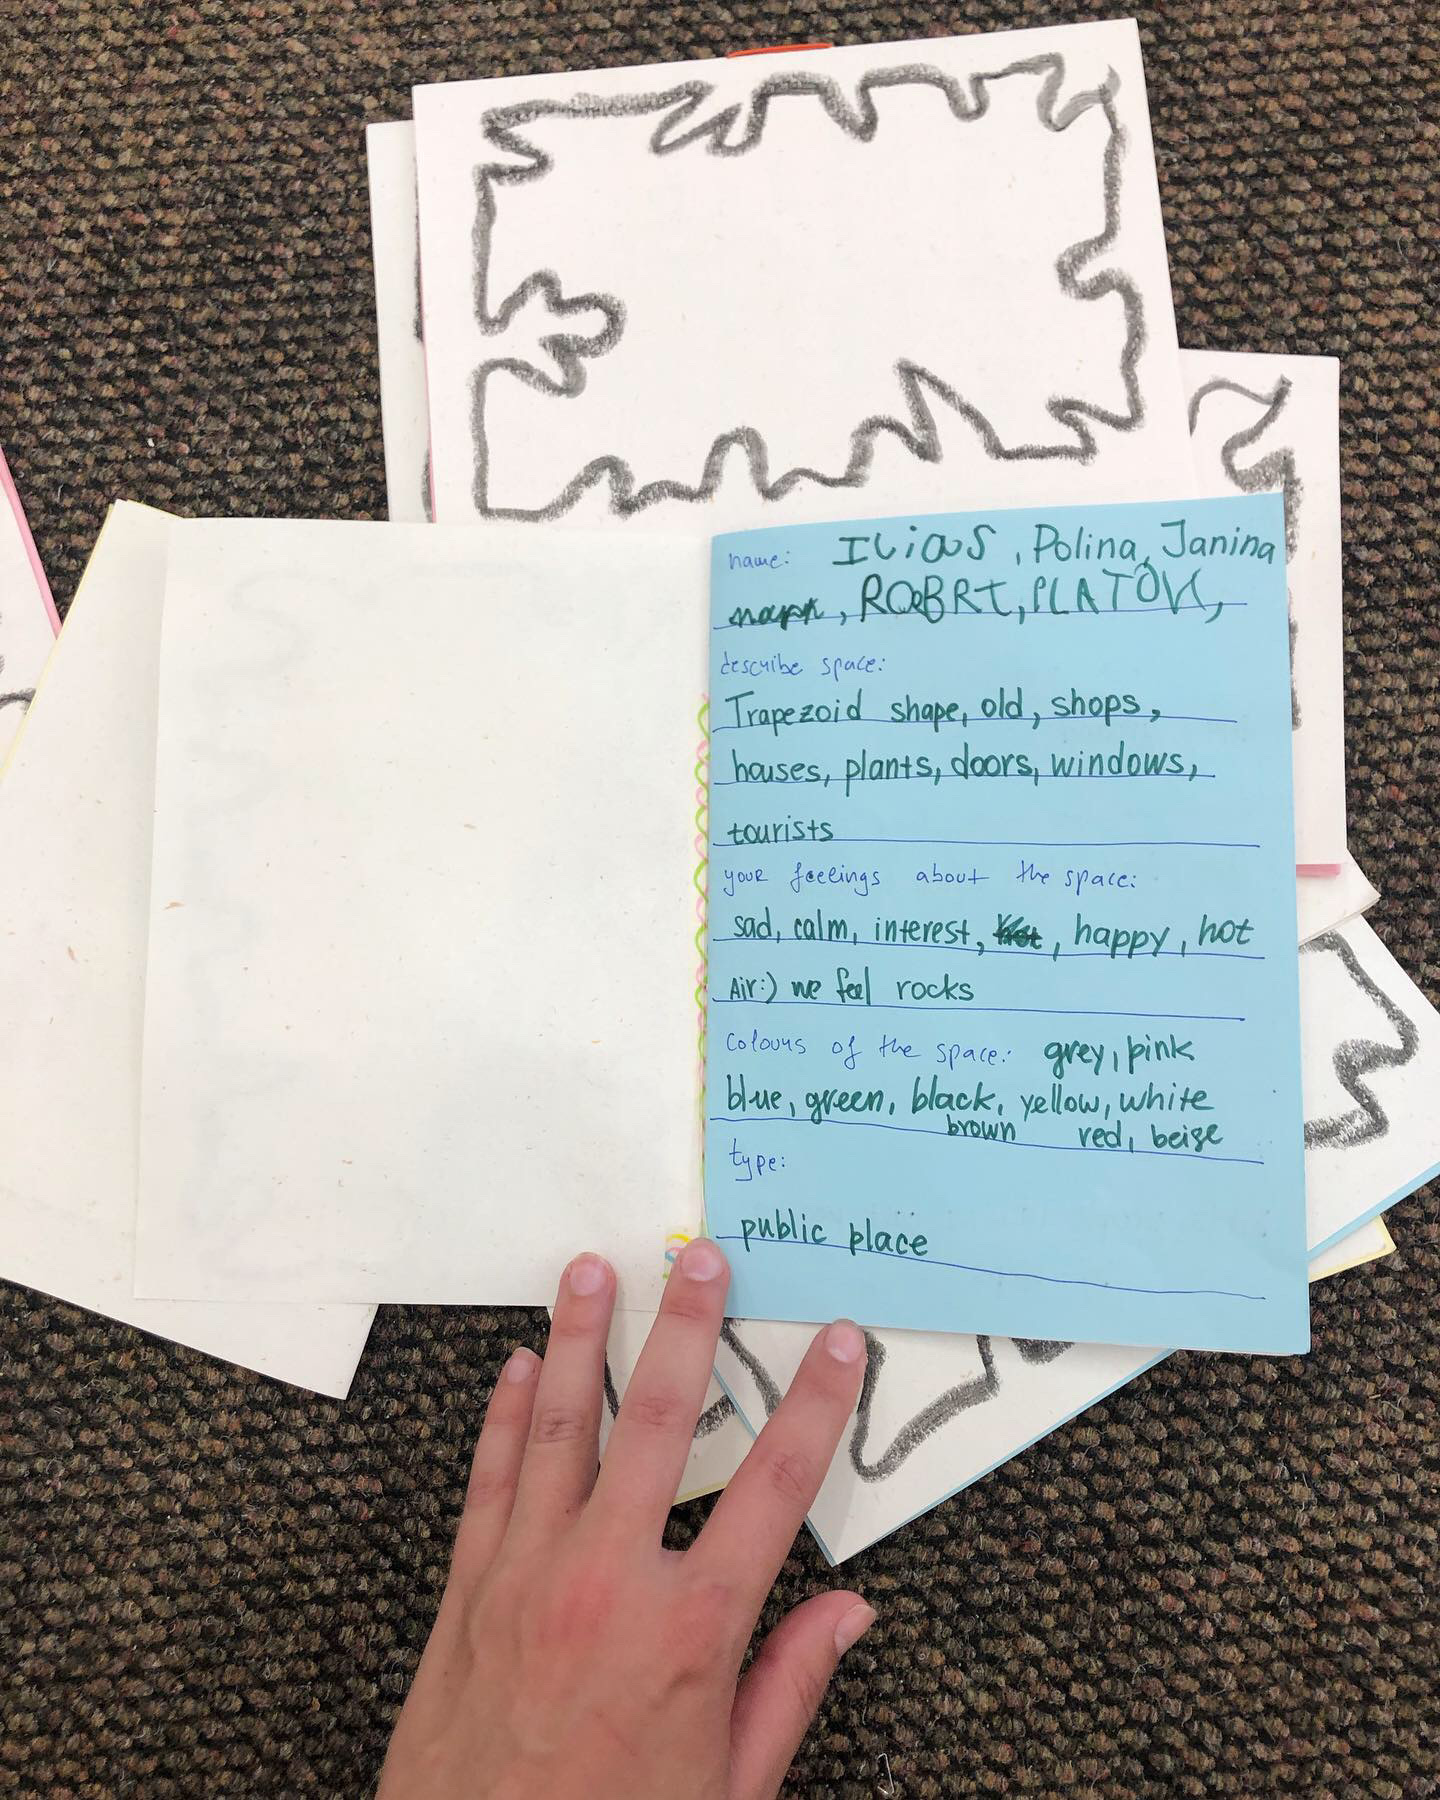 name: ILiaS, Polina, Janina
, ROBRt, PLATON,
describe space:
Trapezoid shape, old, shops,
houses, plants, doors, windows,
tourists
your feelings about the space:
sad, calm, interest, , happy, hot
Air:) we feel rocks
colours of the space: grey, pink
blue, green, black, yellow, white
brown red, beige
type:
public place